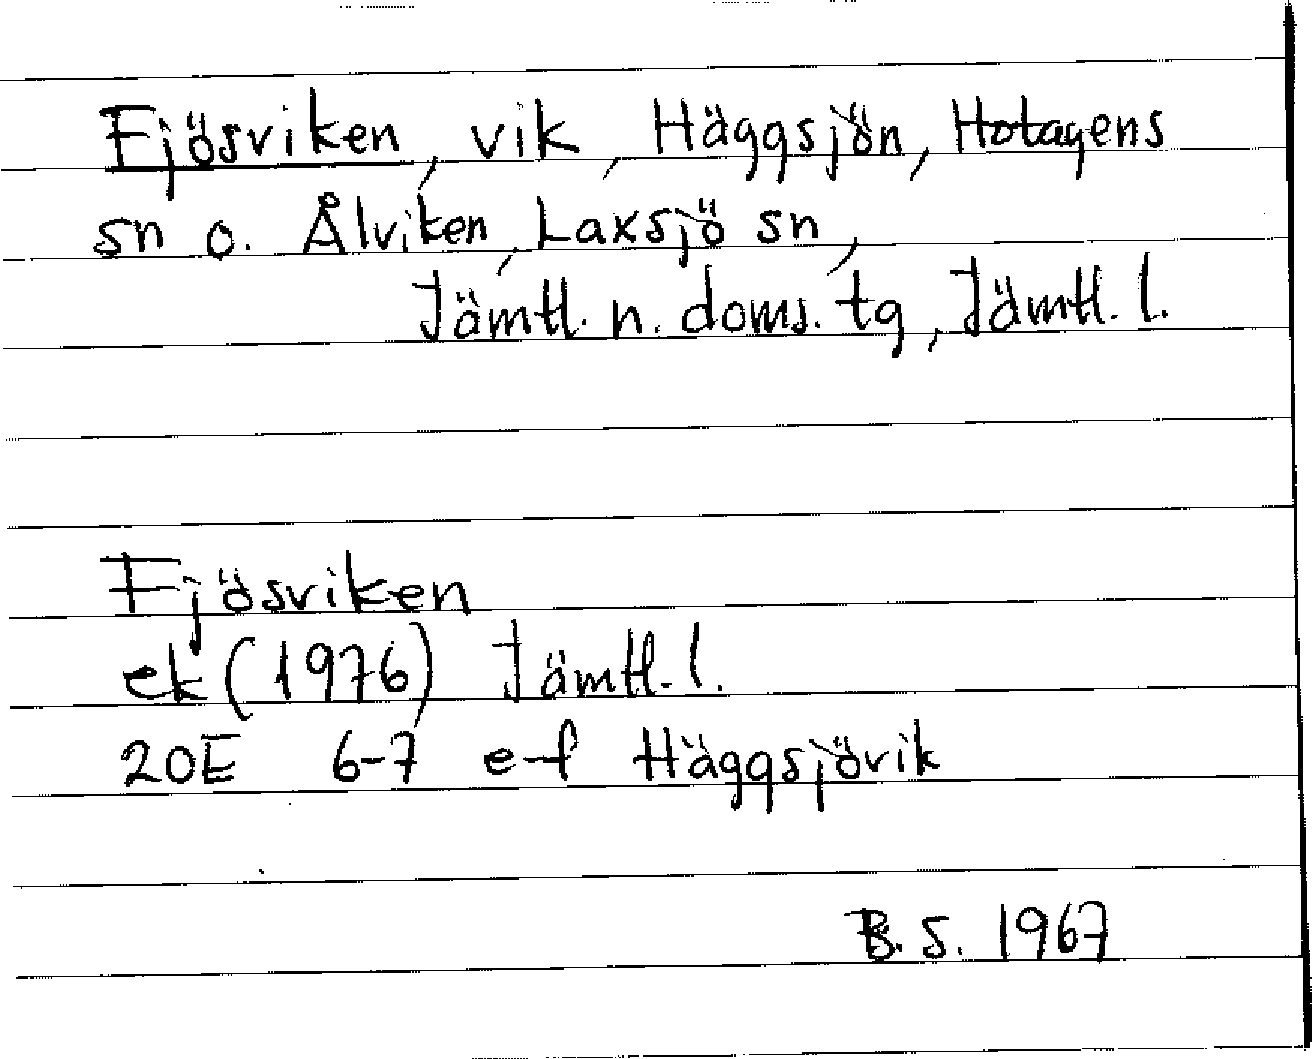 Fjösviken, vik, Häggsjön, Hotagens
sn o. Ålviken, Laxsjö sn,
Jämtl. n. doms. tg, Jämtl. l.
Fjösviken
ek (1976) Jämtl. l.
20E 6-7 e-f Häggsjövik
B. S. 1967